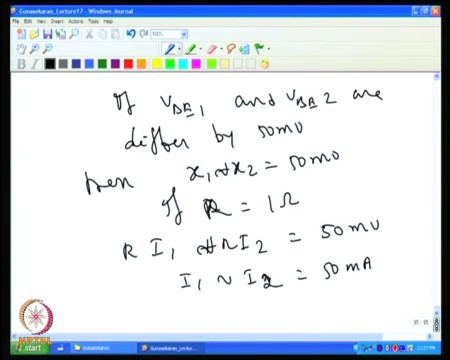 Gunasekaran_Lecture17 - Windows Journal
File Edit View Insert Actions Tools Help
100%
B I
If VBE1 and VBE2 are
differ by 50mV
then x1 ~ x2 = 50mV
If R = 1Ω
R I1 ~ R I2 = 50mV
I1 ~ I2 = 50mA
NPTEL
start
Gunasekaran
Gunasekaran_Lec...